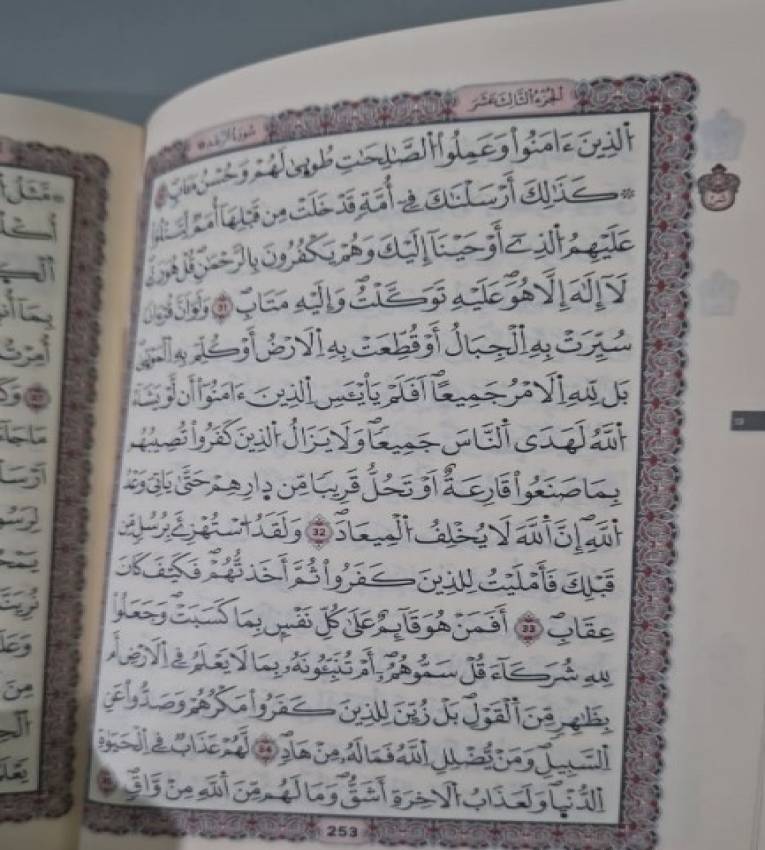 الجزء الثالث عشر
سورة الرعد
اَ۬لذِينَ ءَامَنُواْ وَعَمِلُواْ اُ۬لصَّٰلِحَٰتِ طُوبٜيٰ لَهُمْ وَحُسْنُ مَـَٔابٖۖ
۞ كَذَٰلِكَ أَرْسَلْنَٰكَ فِےٓ أُمَّةٖ قَدْ خَلَتْ مِن قَبْلِهَآ أُمَمٞ لِّتَتْلُوَاْ
عَلَيْهِمُ اُ۬لذِےٓ أَوْحَيْنَآ إِلَيْكَ وَهُمْ يَكْفُرُونَ بِالرَّحْمَٰنِۖ قُلْ هُوَ رَبِّے
لَآ إِلَٰهَ إِلَّا هُوَۖ عَلَيْهِ تَوَكَّلْتُ وَإِلَيْهِ مَتَابِۖ 31 وَلَوَ اَنَّ قُرْءَاناٗ
سُيِّرَتْ بِهِ اِ۬لْجِبَالُ أَوْ قُطِّعَتْ بِهِ اِ۬لَارْضُ أَوْ كُلِّمَ بِهِ اِ۬لْمَوْتٜيٰۖ
بَل لِّلهِ اِ۬لَامْرُ جَمِيعاًۖ اَفَلَمْ يَاْيْـَٔسِ اِ۬لذِينَ ءَامَنُوٓاْ أَن لَّوْ يَشَآءُ
اُ۬للَّهُ لَهَدَي اَ۬لنَّاسَ جَمِيعاٗۖ وَلَا يَزَالُ اُ۬لذِينَ كَفَرُواْ تُصِيبُهُم
بِمَا صَنَعُواْ قَارِعَةٌ اَوْ تَحُلُّ قَرِيباٗ مِّن د۪ارِهِمْ حَتَّىٰ يَاتِيَ وَعْدُ
اُ۬للَّهِۖ إِنَّ اَ۬للَّهَ لَا يُخْلِفُ اُ۬لْمِيعَادَۖ 32 وَلَقَدُ اُ۟سْتُهْزِۓَ بِرُسُلٖ مِّن
قَبْلِكَ فَأَمْلَيْتُ لِلذِينَ كَفَرُواْ ثُمَّ أَخَذتُّهُمْۖ فَكَيْفَ كَانَ
عِقَابِۖ 33 أَفَمَنْ هُوَ قَآئِمٌ عَلَىٰ كُلِّ نَفْسِۢ بِمَا كَسَبَتْۖ وَجَعَلُواْ
لِلهِ شُرَكَآءَ قُلْ سَمُّوهُمُۥٓۖ أَمْ تُنَبِّـُٔونَهُۥ بِمَا لَا يَعْلَمُ فِے اِ۬لَارْضِ أَم
بِظَٰهِرٖ مِّنَ اَ۬لْقَوْلِۖ بَلْ زُيِّنَ لِلذِينَ كَفَرُواْ مَكْرُهُمْ وَصَدُّواْ عَنِ
اِ۬لسَّبِيلِۖ وَمَنْ يُّضْلِلِ اِ۬للَّهُ فَمَا لَهُۥ مِنْ هَادٖۖ 34 لَّهُمْ عَذَابٞ فِے اِ۬لْحَيَوٰةِ
اِ۬لدُّنْي۪اۖ وَلَعَذَابُ اُ۬لَاخِرَةِ أَشَقُّۖ وَمَا لَهُم مِّنَ اَ۬للَّهِ مِنْ وَّاقٖۖ
253